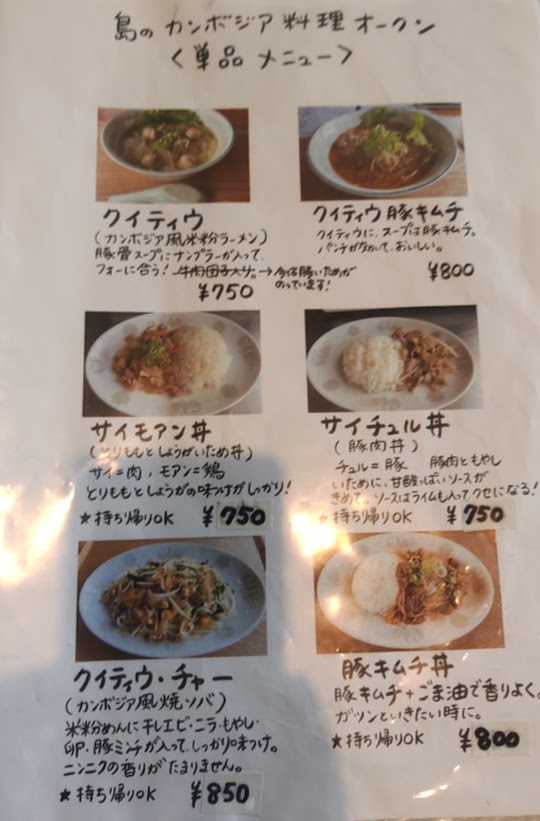 島の カンボジア 料理 オークン
〈 単品 メニュー 〉
クイティウ
(カンボジア風米粉ラーメン)
豚骨スープにナンプラーが入って、
フォーに合う! 牛肉団子入り。→ 今は豚いためが
のっています!
¥750
クイティウ 豚キムチ
クイティウに、スープは豚キムチ。
パンチがきいて、おいしい。
¥800
サイモアン丼
(とりももとしょうがいため丼)
サイ=肉、モアン=鶏
とりももとしょうがの味つけがしっかり!
★ 持ち帰りOK ¥750
サイチュル丼
(豚肉丼)
チュル=豚 豚肉ともやし
いために、甘酸っぱいソースが
きめて。ソースはライムも入って、クセになる!
★ 持ち帰りOK ¥750
クイティウ・チャー
(カンボジア風焼ソバ)
米粉めんに干しエビ・ニラ・もやし・
卵・豚ミンチが入って、しっかり味つけ。
ニンニクの香りがたまりません。
★ 持ち帰りOK ¥850
豚キムチ丼
豚キムチ+ごま油で香りよく。
ガツンといきたい時に。
★ 持ち帰りOK ¥800